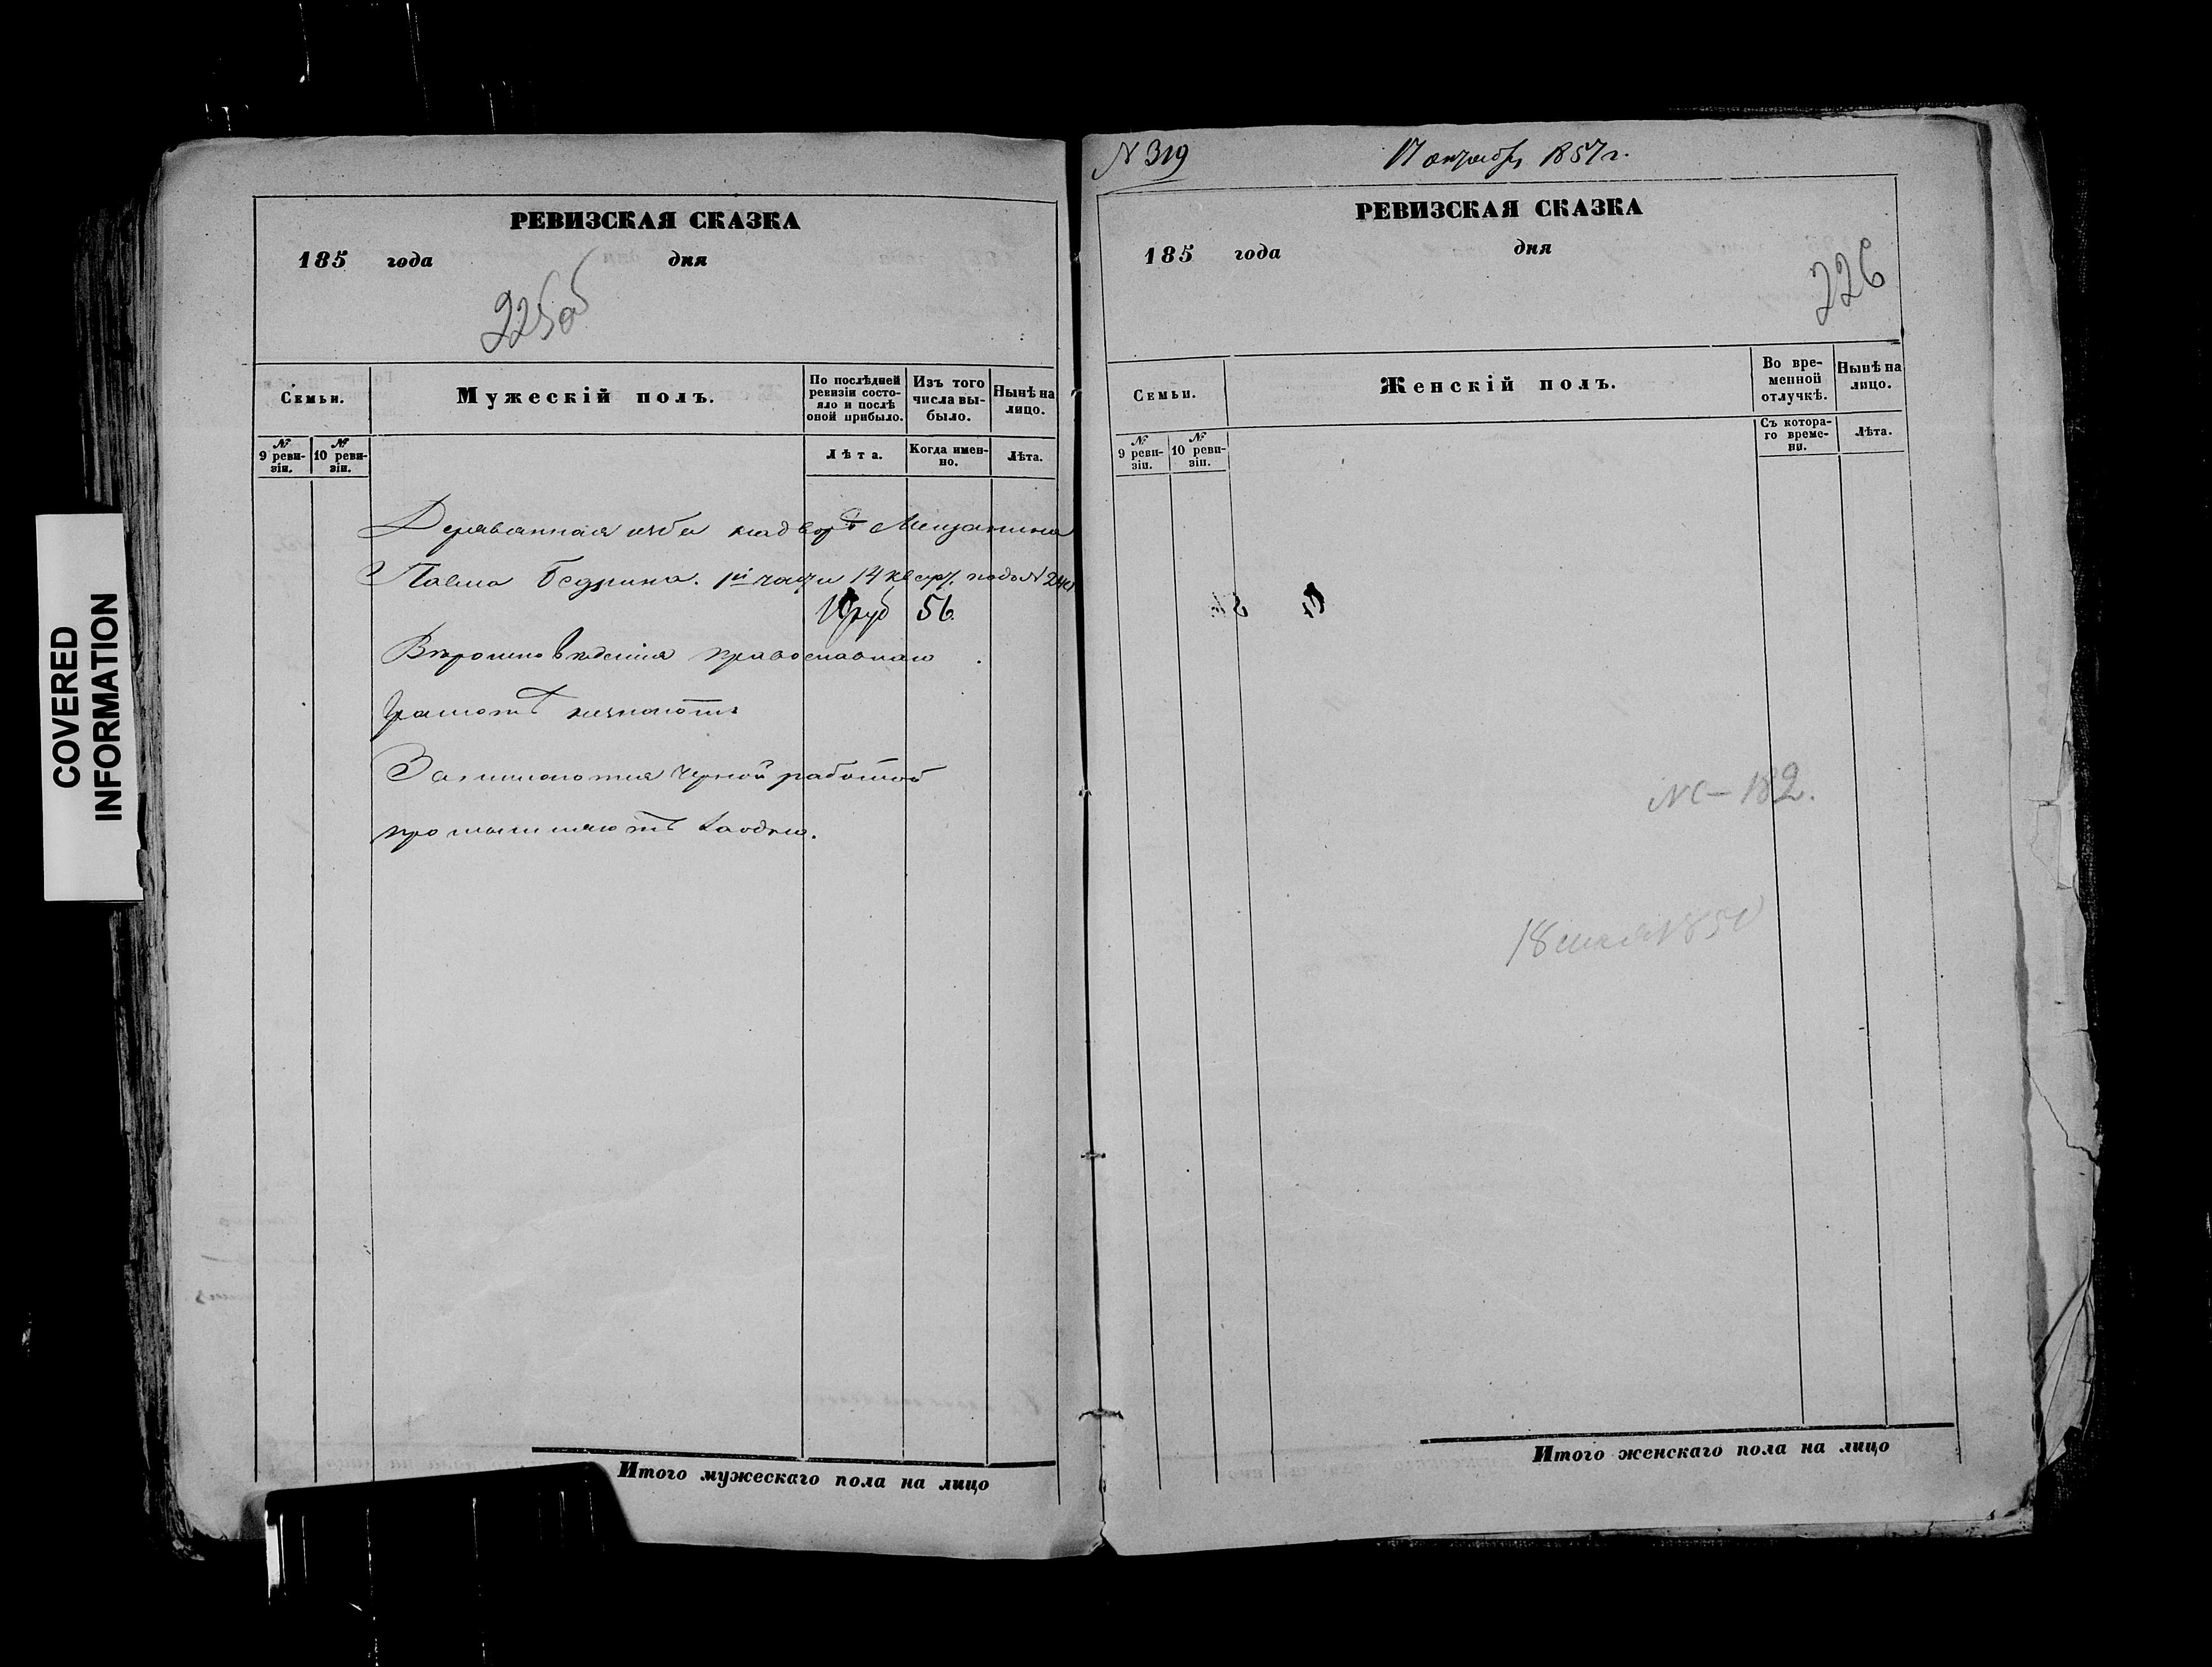 COVERED
INFORMATION
РЕВИЗСКАЯ СКАЗКА
185 года дня
225об
Семьи.
Мужескій полъ.
По послѣдней ревизіи состояло и послѣ оной прибыло.
Изъ того числа выбыло.
Нынѣ на лицо.
№ 9 ревизіи.
№ 10 ревизіи.
Лѣта.
Когда именно.
Лѣта.
Деревянная изба на дворѣ Мещанина
Павла 1й части 14 кварт. подъ №
руб 56.
Вѣроисповеденія православнаго
Грамотѣ незнаютъ
Занимаются черной работой
промышляютъ
Итого мужескаго пола на лицо
N 319
17 октября 1857 г.
РЕВИЗСКАЯ СКАЗКА
185 года дня
226
Семьи.
Женскій полъ.
Во временной отлучкѣ.
Нынѣ на лицо.
№ 9 ревизіи.
№ 10 ревизіи.
Съ котораго времени.
Лѣта.
182.
Итого женскаго пола на лицо